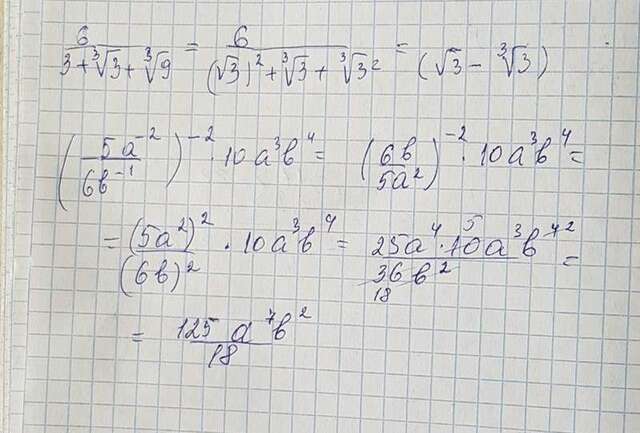 6/(3+∛3+∛9) = 6/((√3)²+∛3+∛3²) = (√3-∛3)
(5a⁻²/6b⁻¹)⁻² · 10a³b⁴ = (6b/5a²)⁻² · 10a³b⁴ =
= (5a²)²/(6b)² · 10a³b⁴ = 25a⁴·10⁵a³b⁴²/36b² =
18
= 125a⁷b²/18